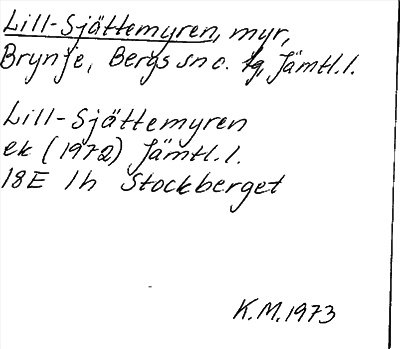 Lill-Sjättemyren, myr,
Brynje, Bergs sn o. tg, Jämtl.l.
Lill-Sjättemyren
ek (1972) Jämtl.l.
18E 1h Stockberget
K.M.1973